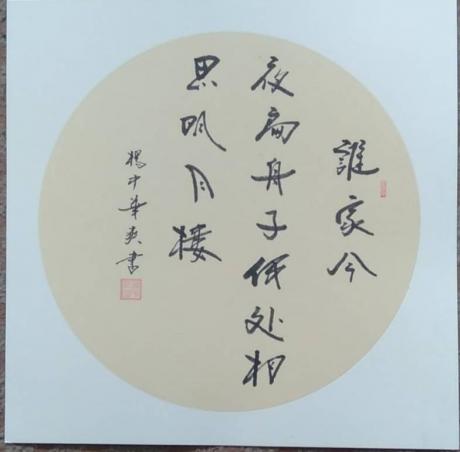 誰家今
夜扁舟子何处相
思明月樓
楊中華書